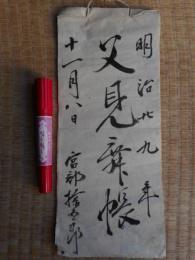 明治廿九年
父見舞帳
十一月八日
宮部捨五郎